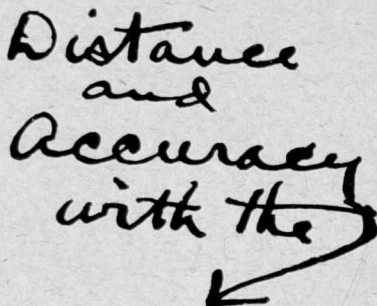 Distance
and
Accuracy
with the